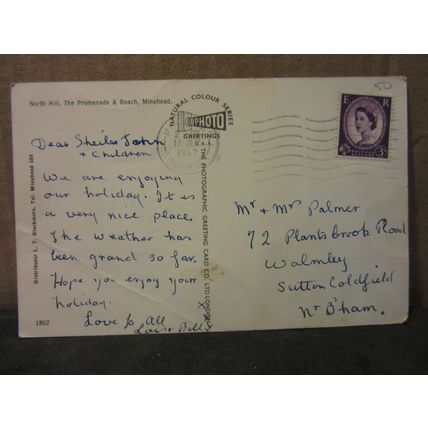 North Hill, The Promenade & Beach, Minehead.
Dear Sheila John
+ Children
We are enjoying
our holiday. It is
a very nice place
The weather has
been grand so far.
Hope you enjoy your
holiday.
Love to All
Lois + Bill
1802
Distributor L. T. Blackmore, Tel. Minehead
NATURAL COLOUR SERIES
PHOTO
GREETINGS
THE PHOTOGRAPHIC GREETING CARD CO LTD LONDON
1967
50
E R
3D
Mr + Mrs Palmer
72 Plantsbrook Road
Walmley
Sutton Coldfield
Nr B'ham.